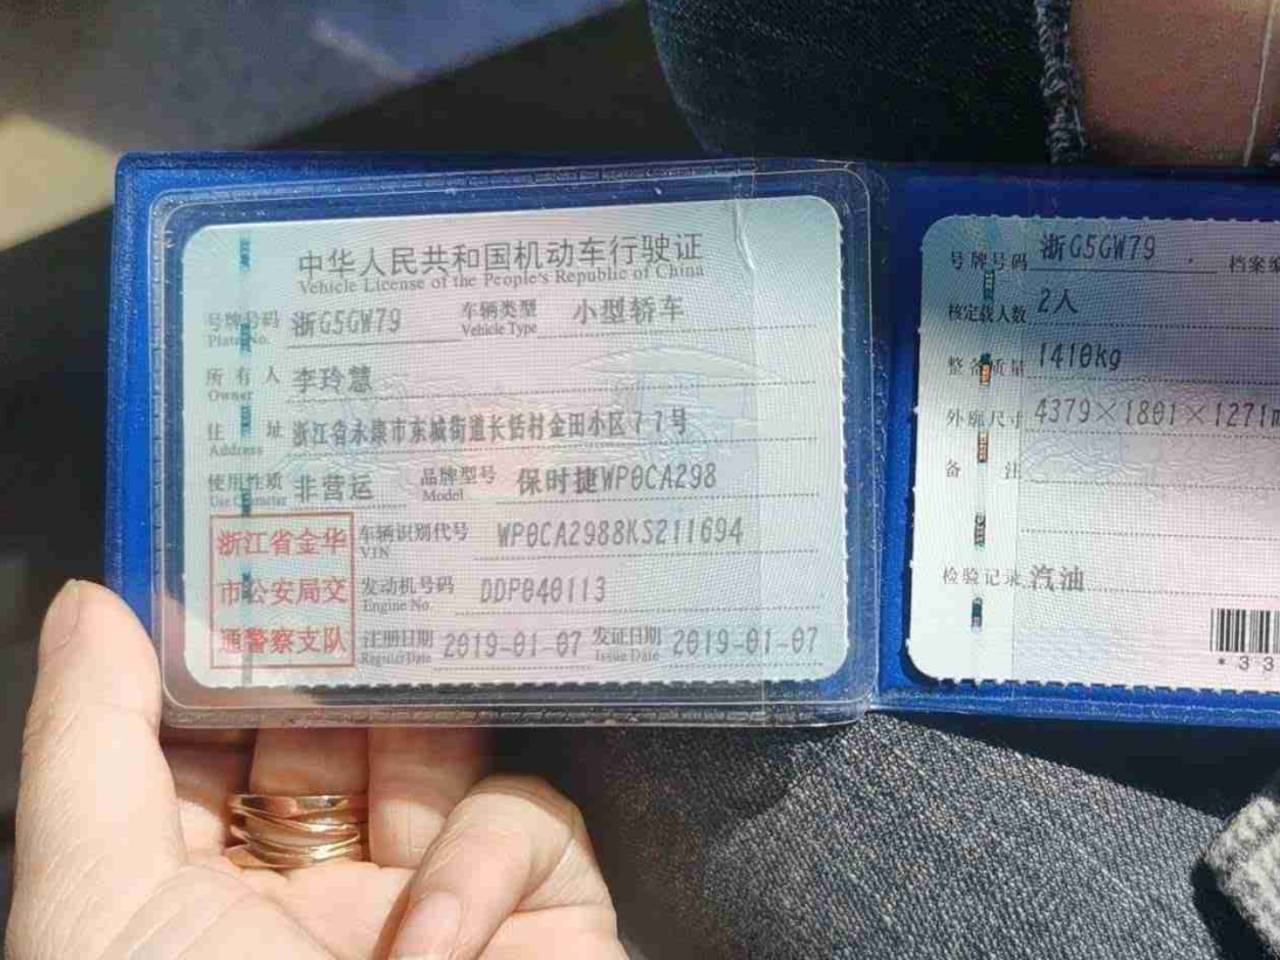 中华人民共和国机动车行驶证
Vehicle License of the People's Republic of China
号牌号码 浙G5GW79 车辆类型 小型轿车
Plate No. Vehicle Type
所有人 李玲慧
Owner
住址 浙江省永康市东城街道长恬村金田小区77号
Address
使用性质 非营运 品牌型号 保时捷WP0CA298
Use Character Model
浙江省金华
市公安局交
通警察支队
车辆识别代号 WP0CA2988KS211694
VIN
发动机号码 DDP040113
Engine No.
注册日期 2019-01-07 发证日期 2019-01-07
Register Date Issue Date
号牌号码 浙G5GW79 档案编
核定载人数 2人
整备质量 1410kg
外廓尺寸 4379×1801×1271
备注
检验记录 汽油
*33